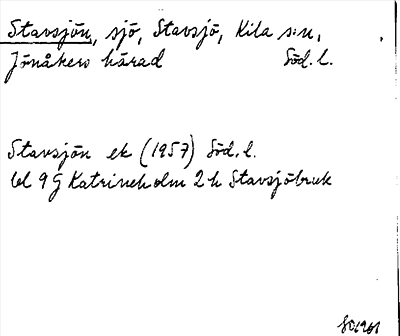 Stavsjön, sjö, Stavsjö, Kila s:n,
Jönåkers härad Söd. l.
Stavsjön ek (1957) Söd. l.
bl 9 G Katrineholm 2 h Stavsjöbruk